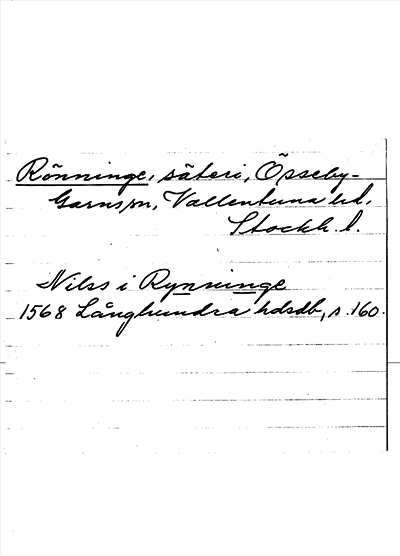 Rönninge, säteri, Össeby-
Garns sn, Vallentuna hd,
Stockh. l.
Nilss i Rynninge
1568 Långhundra hdsdb, s. 160.